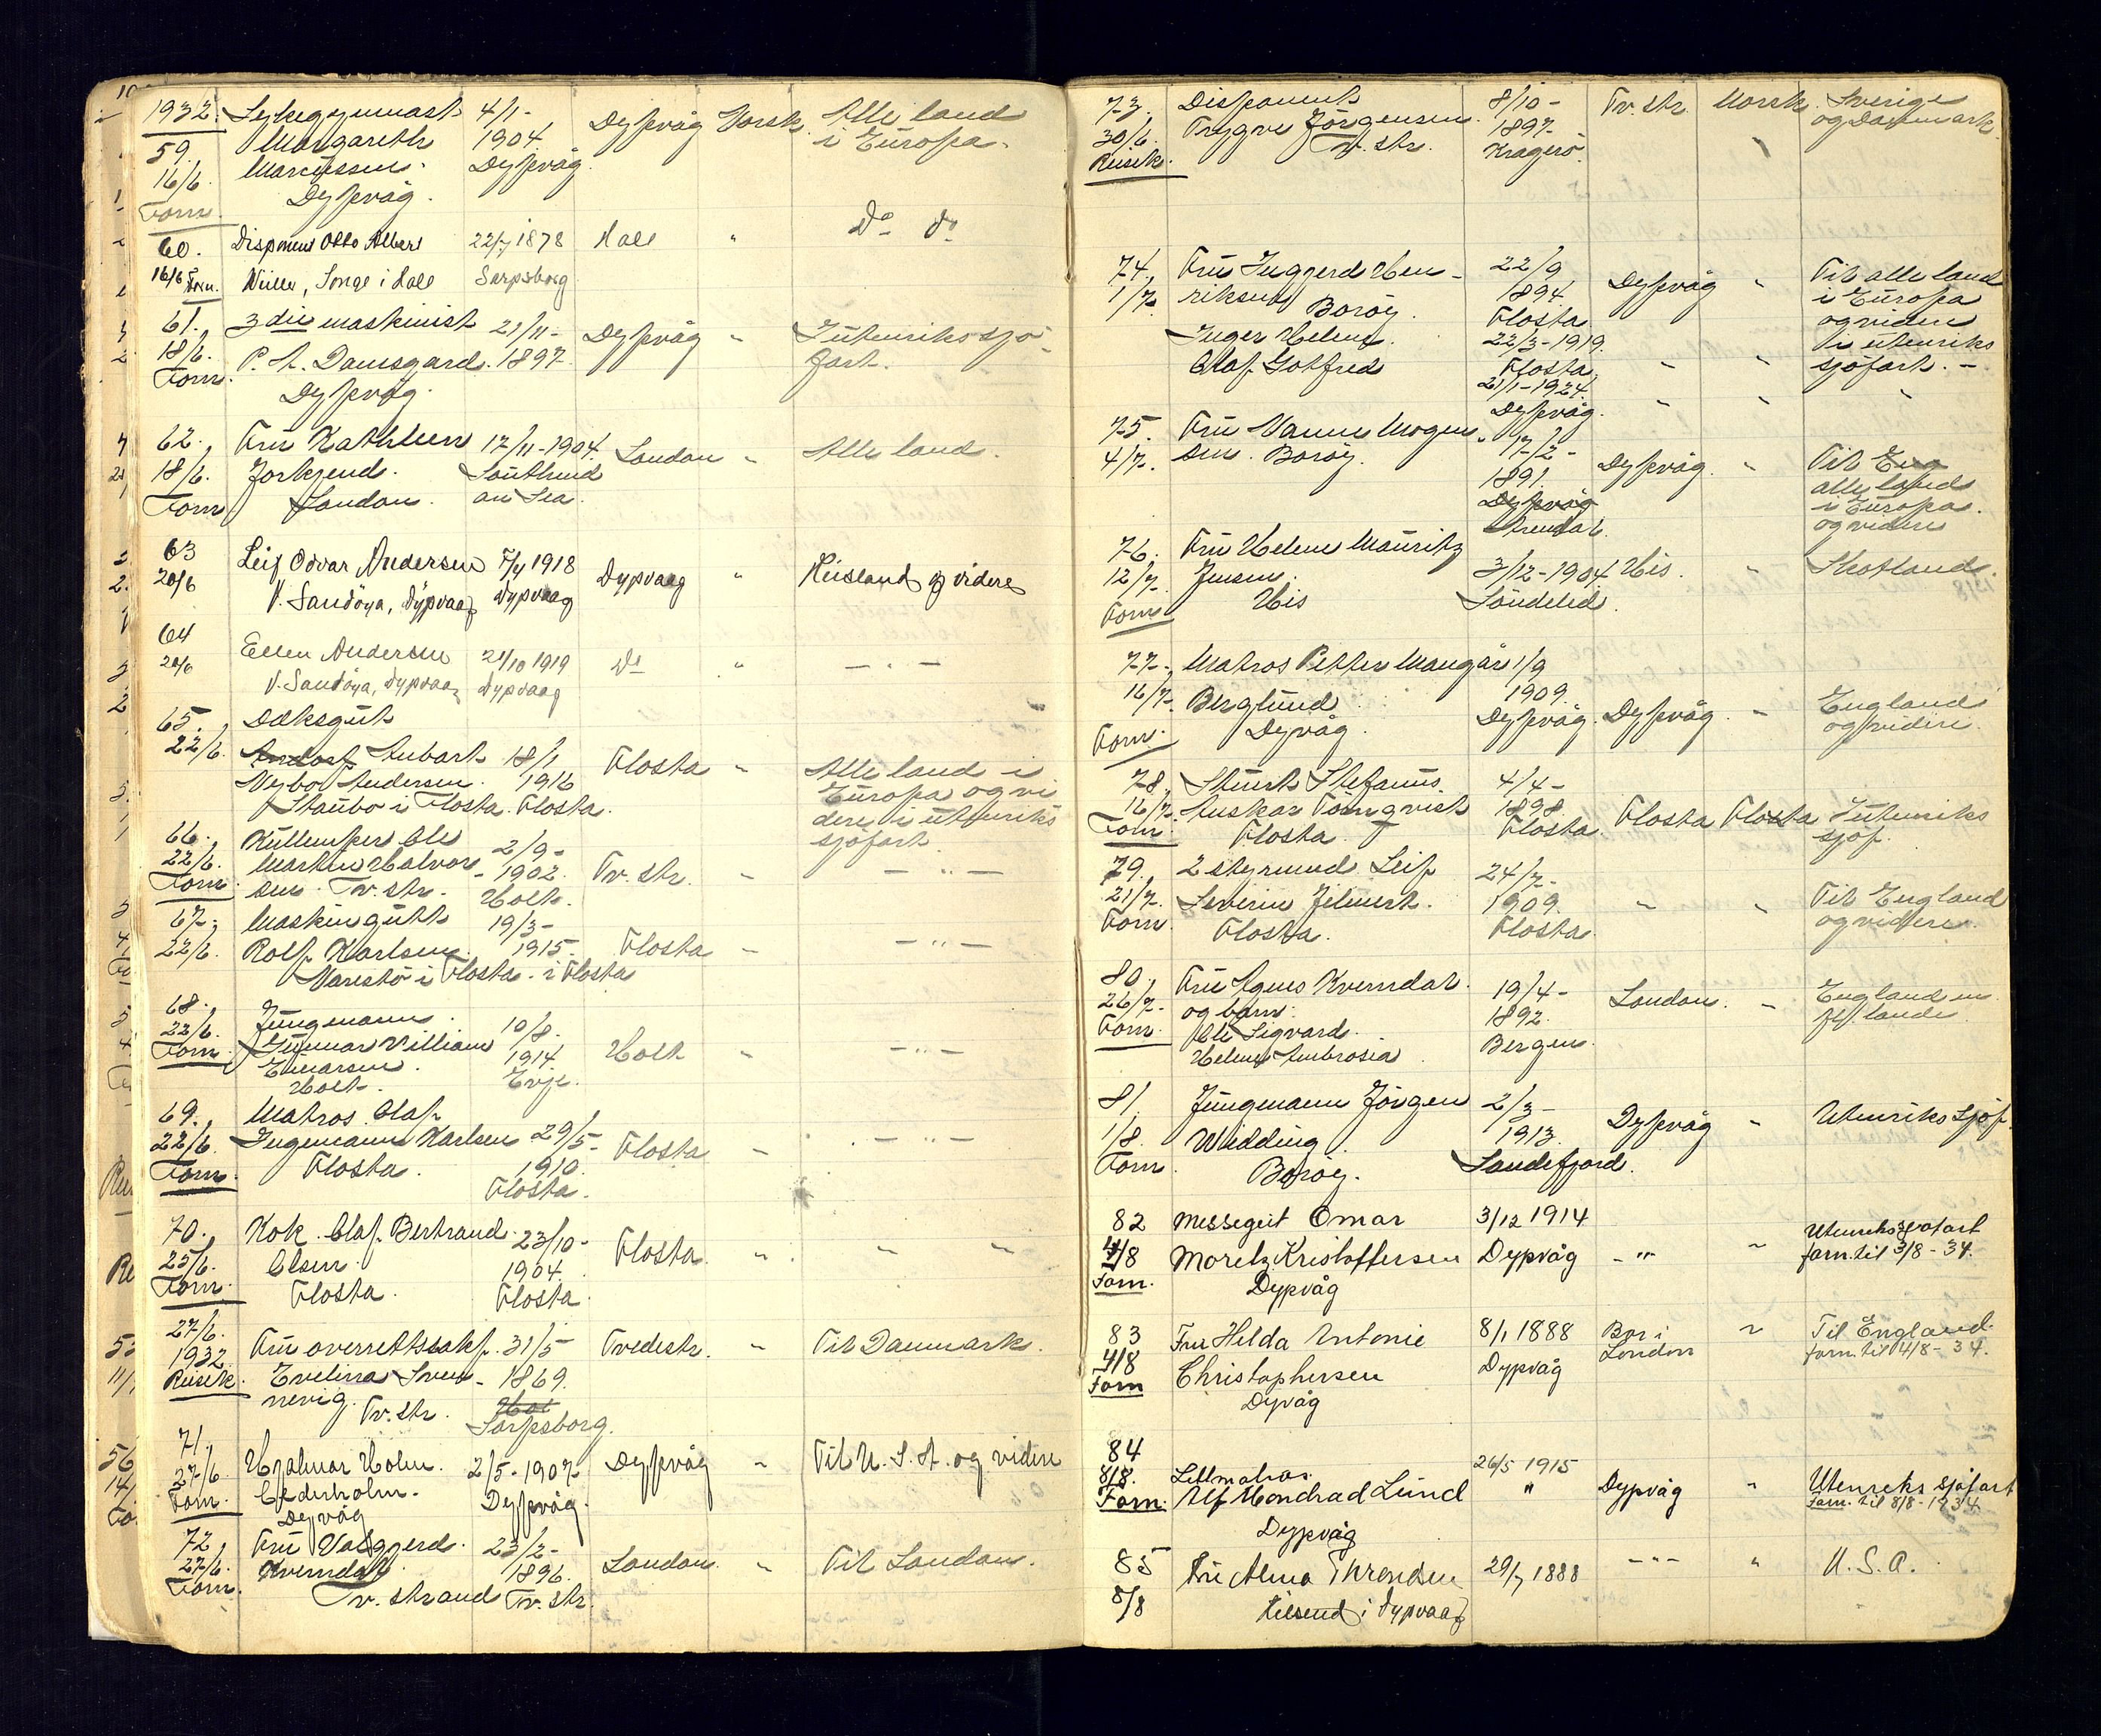 1932. Sykegymnast 4/1- Dypvåg Norsk. Alle land
59. Margareth 1904. i Europa.
16/6. Marcussen. Dypvåg.
Forn. Dypvåg.
60. Disponent Otto Albert 22/7 1878 Holt " Do Do
16/6 Forn. Songe i Holt Sarpsborg
61. 3die maskinist 21/11- Dypvåg " I utenrikssjø-
18/6. P. A. Damsgård. 1897. fart.
Forn. Dypvåg.
62. Fru Kathleen 17/11-1904. London " Alle land.
18/6. Southend
Forn London. on Sea.
63 Leif Odvar Andersen 5/4 1918 Dypvaag " Rusland og videre
20/6 V. Sandøya, Dypvaag Dypvaag
64 Ellen Andersen 21/10 1919 Do " — " —
20/6 V. Sandøya, Dypvaag Dypvaag
65. Dæksgut
22/6. Anbart 18/1 Flosta " Alle land i
Nybo Andersen. 1916 Europa og vi
Staubø i Flosta. Flosta. dere i utenriks
66. Kullemper Ole 2/9- sjøfart.
22/6. Martin Halvor- - 1902. Tv. str. " — " —
Forn. sen. Tv. str. Holt.
67. Maskingutt 19/3-
22/6. Rolf Karlsen. 1915. Flosta " — " —
Narestø i Flosta. i Flosta
68. Jungmann. 10/8.
22/6. Gunnar Villiam 1914 Holt " — " —
Forn. Einarsen. Evje.
Holt.
69. Matros Olaf
22/6. Ingemann Karlsen 29/5- Flosta " — " —
Forn. Flosta. 1910.
Flosta.
70. Kok. Olaf Bertrand 23/10- Flosta. " " "
25/6. Olsen. 1904.
Forn. Flosta. Flosta.
27/6. Fru overrettssakf. 31/5- Tvedestr. " Til Danmark.
1932 Evelina Sven- 1869.
Rusik. nevig. Tv. str. Holt
Sarpsborg.
71. Hjalmar Holm. 2/5-1907 Dypvåg " Til U.S.A. og videre
27/6. Cederholm. Dypvåg.
Forn. Dypvåg
72. Fru Valgjerd. 23/2- London. " Til London.
27/6. Kverndal 1896.
Forn. Tv. strand Tv. str.
73. Disponent 8/10- Tv. str. Norsk. Sverige
30/6. Trygve Jörgensen. 1897. og Danmark.
Rusik. Tv. str. Kragerö.
74. Fru Inggjerd Hen- 22/9 Dypvåg " Til alle land
1/7. riksen Borøy. 1894. i Europa
Flosta og videre
Inger Helene. 22/3-1919. i utenriks
Olaf Gotfred Flosta. " " sjøfart. -
21/1-1924.
Dypvåg. " " "
75. Fru Nanna Mogen- 17/2- Dypvåg. " Til Eng
4/7. sen. Borøy. 1891. alle land
Dypvåg i Europa.
Arendal. og videre
76. Fru Helene Mauritz
12/7. Jensen. 3/12-1904. His. " Skotland.
Forn His Söndeled.
77. Matros Petter Mangår 1/9
16/7. Berglund 1909. England
Forn. Dypvåg. Dypvåg. Dypvåg. " og videre.
78. Stuert Stefanus 4/4-
16/7. Anskar Törnqvist 1898. Flosta Flosta I utenriks
Forn. Flosta. Flosta. sjøf.
79. 2 styrmand Leif 24/7-
21/7. Severin 1909. " " Til England
Forn. Flosta. Flosta. og videre.
80. Fru Agnes Kverndal. 19/4- London. " England m.
26/7. og barn: 1892. fl. lande
Forn. Ole Sigvard. Bergen.
Helene Ambrosia.
81. Jungmann Jörgen 2/3- Dypvåg " Utenriks sjøf.
1/8. Widding. 1913.
Forn. Borøy. Sandefjord.
82 Messegut Omar 3/12 1914 Utenrikssjøfart
4/8 Moretz Kristoffersen Dypvåg - " " forn. til 3/8-34.
Forn. Dypvåg
83 Fru Hilda Antonie 8/1 1888 Bor i " Til England.
4/8 Christophersen Dypvåg London forn. til 4/8-34.
Forn Dypvåg
84
8/8. Lettmatros. 26/5 1915
Forn. Ulf Mondrad Lund " Dypvåg " Utenriks sjøfart
Forn. til 8/8-1934.
Dypvåg
85 Fru Alma Throndsen 29/7 1888 - " - " U.S.A.
8/8 i Dypvaag